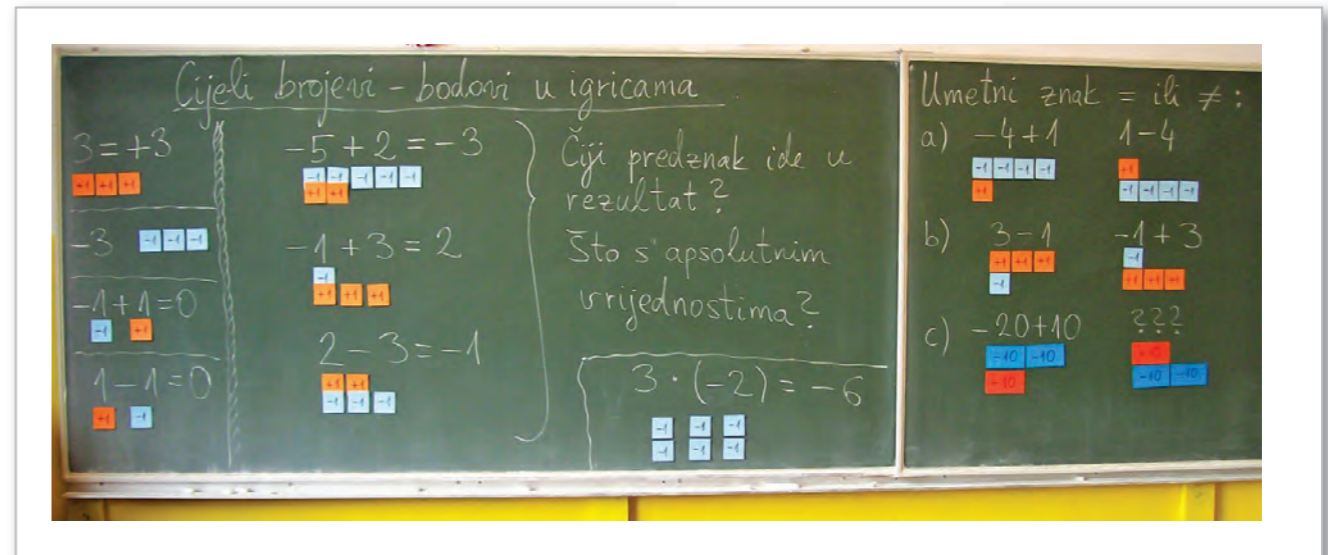 Cijeli brojevi - bodovi u igricama
3 = +3
+1 +1 +1
-3 -1 -1 -1
-1 + 1 = 0
-1 +1
1 - 1 = 0
+1 -1
-5 + 2 = -3
-1 -1 -1 -1 -1
+1 +1
-1 + 3 = 2
-1
+1 +1 +1
2 - 3 = -1
+1 +1
-1 -1 -1
Čiji predznak ide u
rezultat?
Što s apsolutnim
vrijednostima?
3 · (-2) = -6
-1 -1 -1
-1 -1 -1
Umetni znak = ili ≠ :
a) -4+1 1-4
-1 -1 -1 -1 +1
+1 -1 -1 -1 -1
b) 3-1 -1+3
+1 +1 +1 -1
-1 +1 +1 +1
c) -20+10 ???
-10 -10 +10
+10 -10 -10